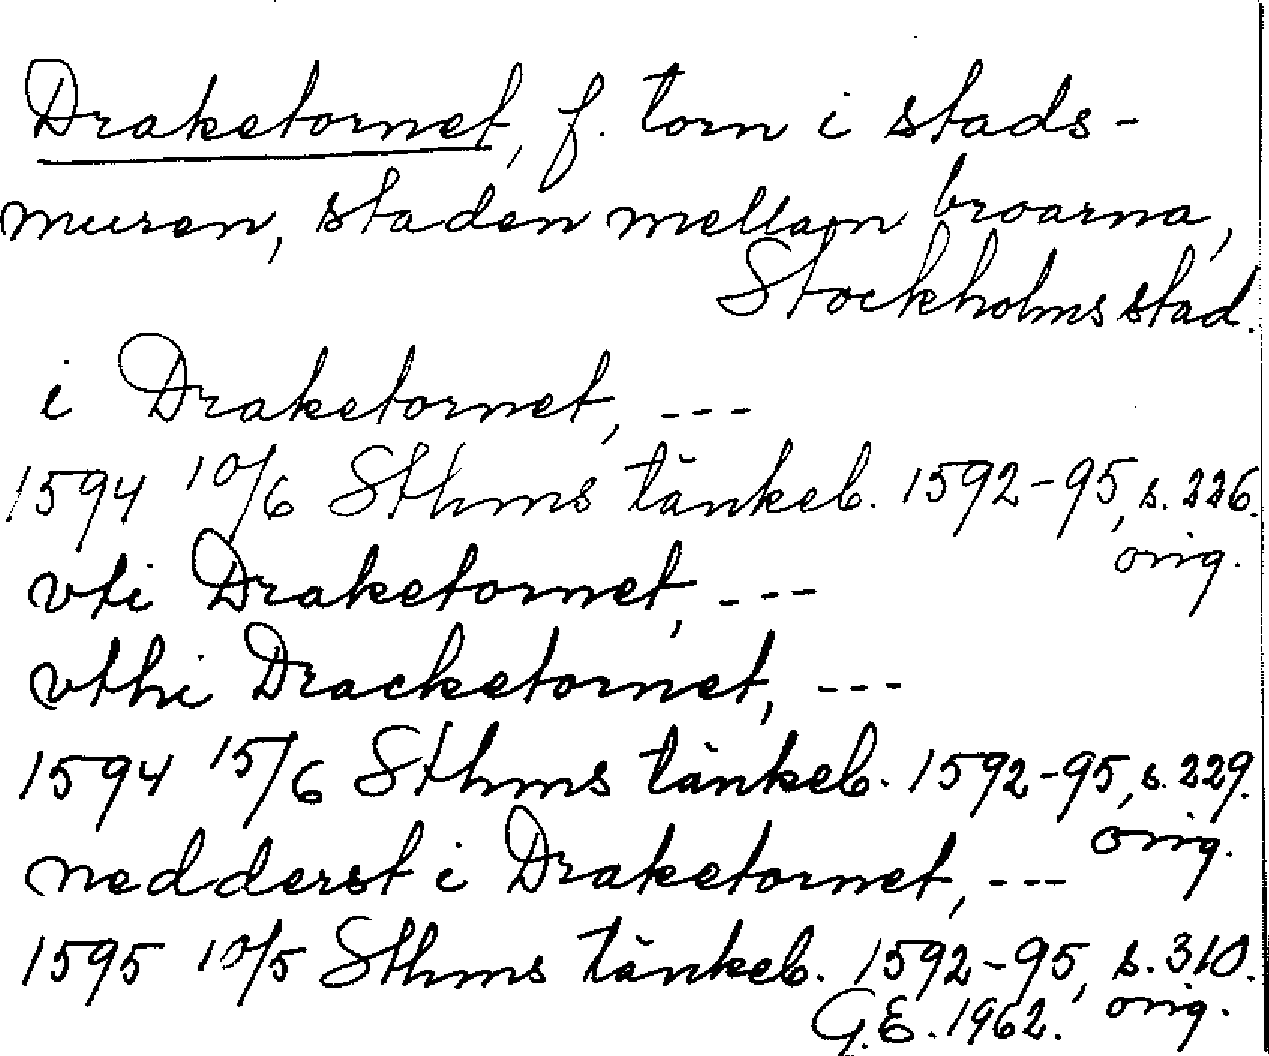 Draketornet, f. torn i stads-
muren, staden mellam broarna,
Stockholms stad.
i Draketornet, ---
1594 10/6 Sthms tänkeb. 1592-95, s. 226.
orig.
vti Draketornet, ---
vthi Dracketornet, ---
1594 15/6 Sthms tänkeb. 1592-95, s. 229.
orig.
nedderst i Draketornet, ---
1595 10/5 Sthms tänkeb. 1592-95, s. 310.
G.E. 1962. orig.